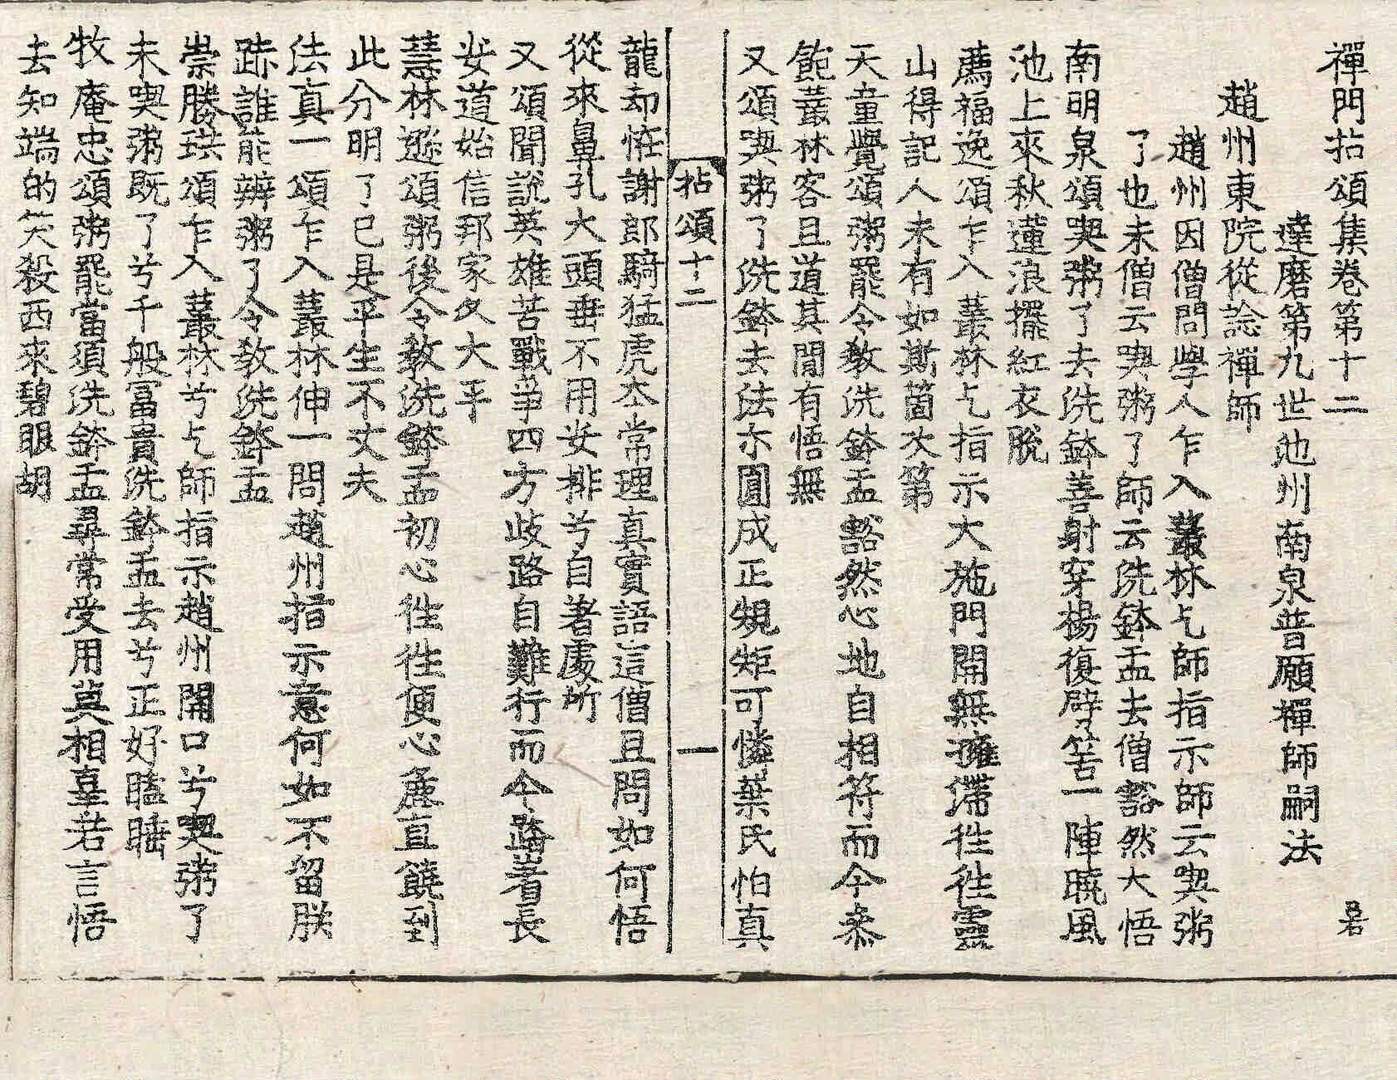 禪門拈頌集卷第十二
畧
達磨第九世池州南泉普願禪師嗣法
趙州東院從諗禪師
趙州因僧問學人乍入叢林乞師指示師云喫粥
了也未僧云喫粥了師云洗鉢盂去僧豁然大悟
南明泉頌喫粥了去洗鉢善射穿楊復劈筈一陣曉風
池上來秋蓮浪擺紅衣脫
薦福逸頌乍入叢林乞指示大施門開無擁滯徃徃靈
山得記人未有如斯箇次第
天童覺頌粥罷令教洗鉢盂豁然心地自相符而今叅
飽叢林客且道其間有悟無
又頌喫粥了洗鉢去法尒圓成正規矩可憐葉氏怕真
拈頌十二
一
龍却恠謝郎騎猛虎太常理真實語這僧且問如何悟
從來鼻孔大頭垂不用安排兮自著處所
又頌聞說英雄苦戰爭四方歧路自難行而今踏着長
安道始信邦家久大平
慧林遜頌粥後令教洗鉢盂初心徃徃便心麁直饒到
此分明了已是平生不丈夫
法真一頌乍入叢林伸一問趙州指示意何如不留朕
跡誰能辨粥了令教洗鉢盂
崇勝珙頌乍入叢林兮乞師指示趙州開口兮喫粥了
未喫粥旣了兮千般冨貴洗鉢盂去兮正好瞌睡
牧庵忠頌粥罷當須洗鉢盂尋常受用莫相辜若言悟
去知端的笑殺西來碧眼胡